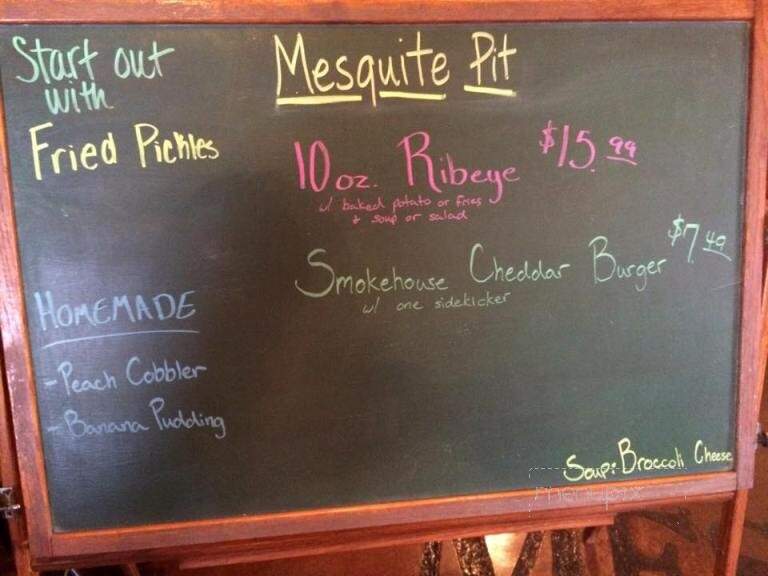 Start out
with
Fried Pickles
HOMEMADE
-Peach Cobbler
-Banana Pudding
Mesquite Pit
10 oz. Ribeye $15.99
w/ baked potato or fries
+ soup or salad
Smokehouse Cheddar Burger $7.49
w/ one sidekicker
Soup: Broccoli Cheese
menupix